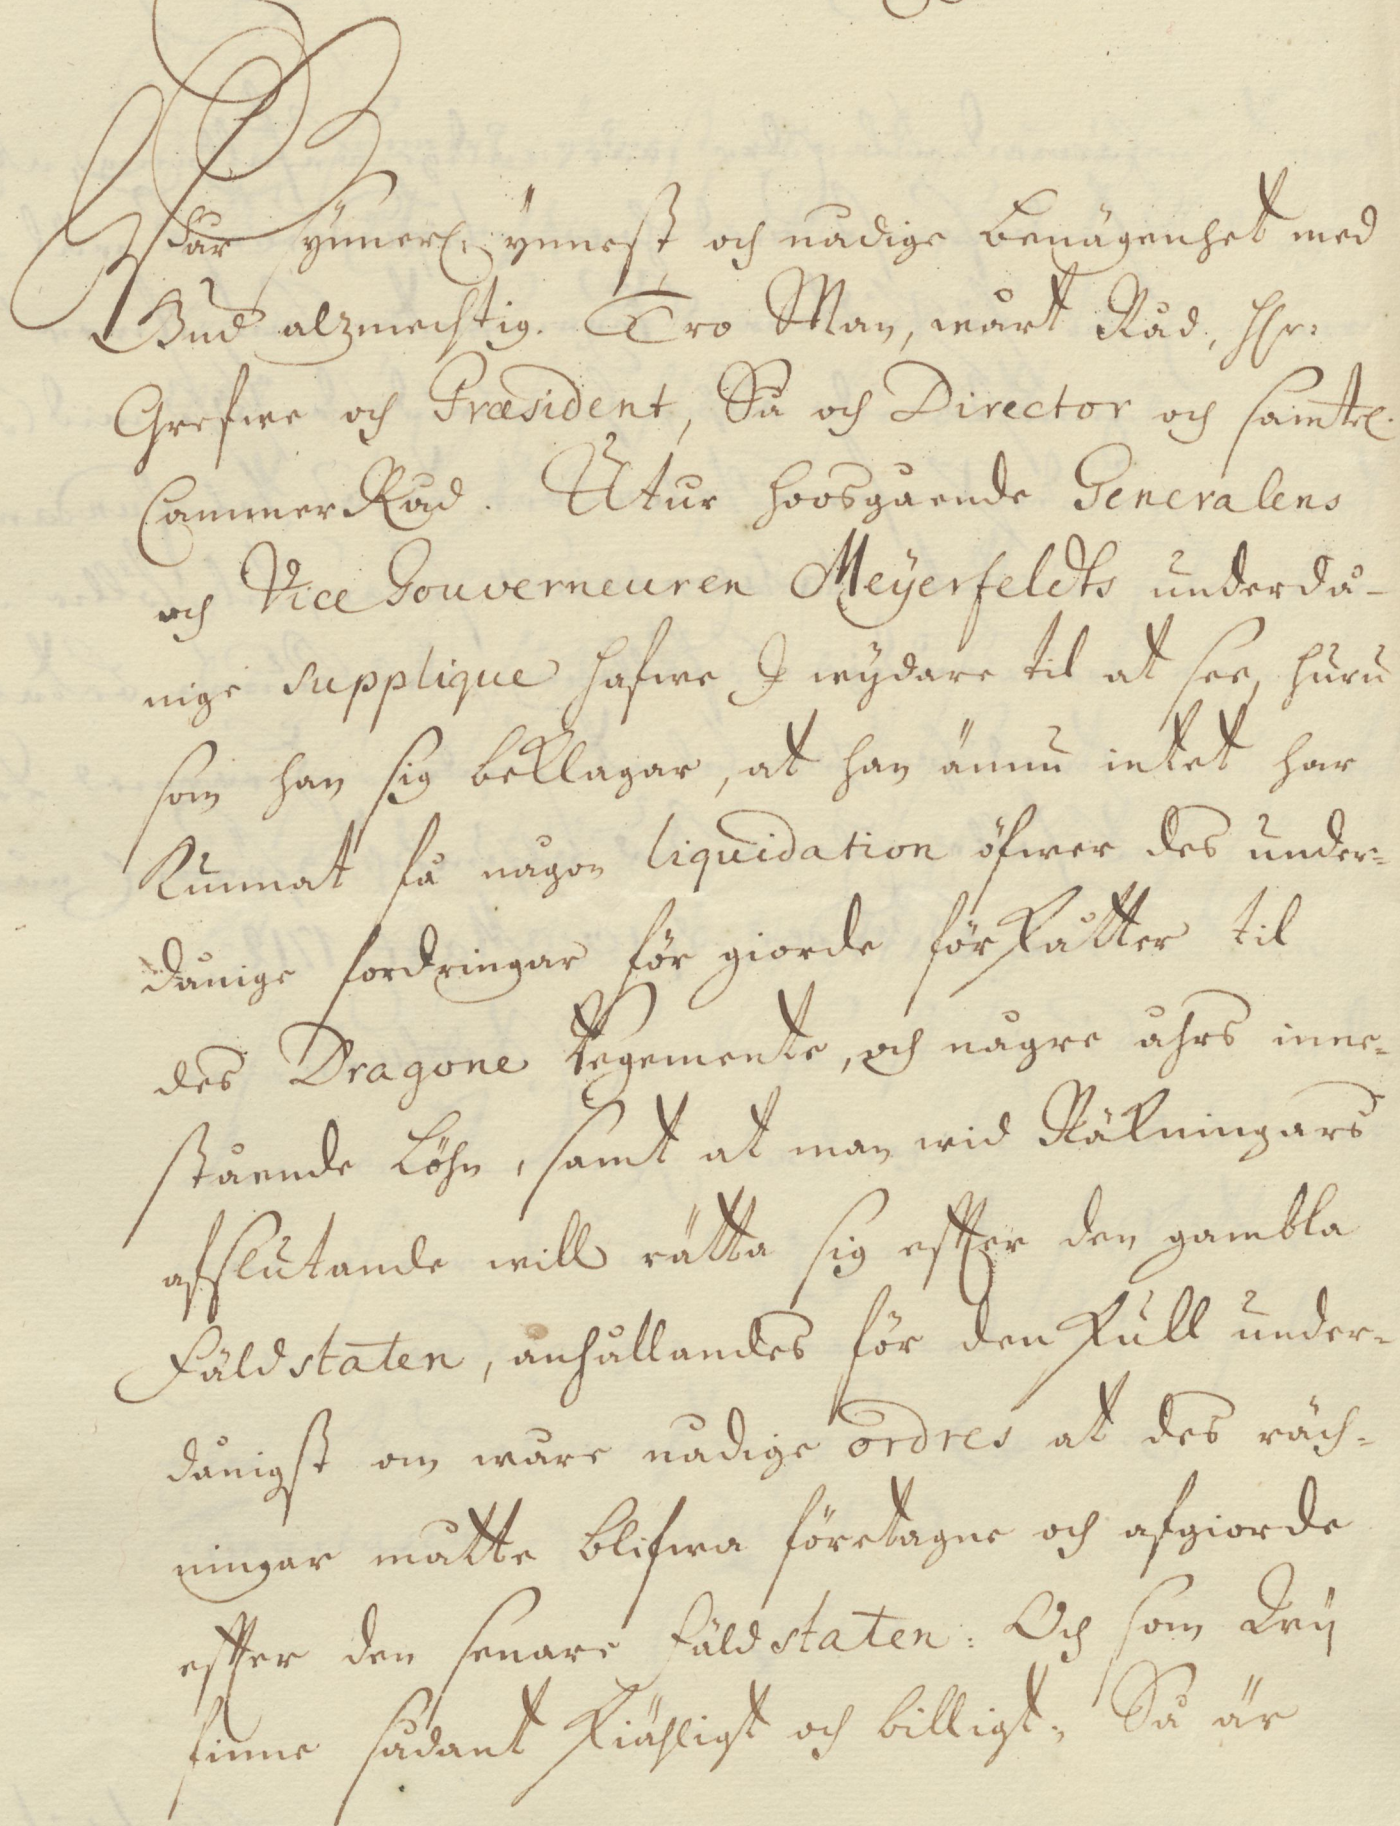 Wår ynnerl. ynnest och nådige benägenhet med
Gud alzmechtig. Tro Man, wårt Råd, hr:
Grefwe och Præsident, Så och Director och samtel.
Cammer Råd. Utur hoosgående Generalens
och Vice Gouverneuren Meyerfeldts underdå-
nige supplique hafwe I wydare til at see, huru
som han sig beklagar, at han ännu intet har
kunnat få någon liquidation öfwer des under-
dånige fordringar för giorde förskåtter til
des Dragone Regemente, och någre åhrs inne-
stående Löhn, samt at man wid Räkningars
afslutande will rätta sig efter den gambla
Fäldstaten, anhållandes för den skull under-
dånigst om wåre nådige ordres at des räck-
ningar måtte blifwa företagne och afgiorde
efter den senare fäldstaten: Och som Wij
finne sådant skiähligt och billigt; Så är